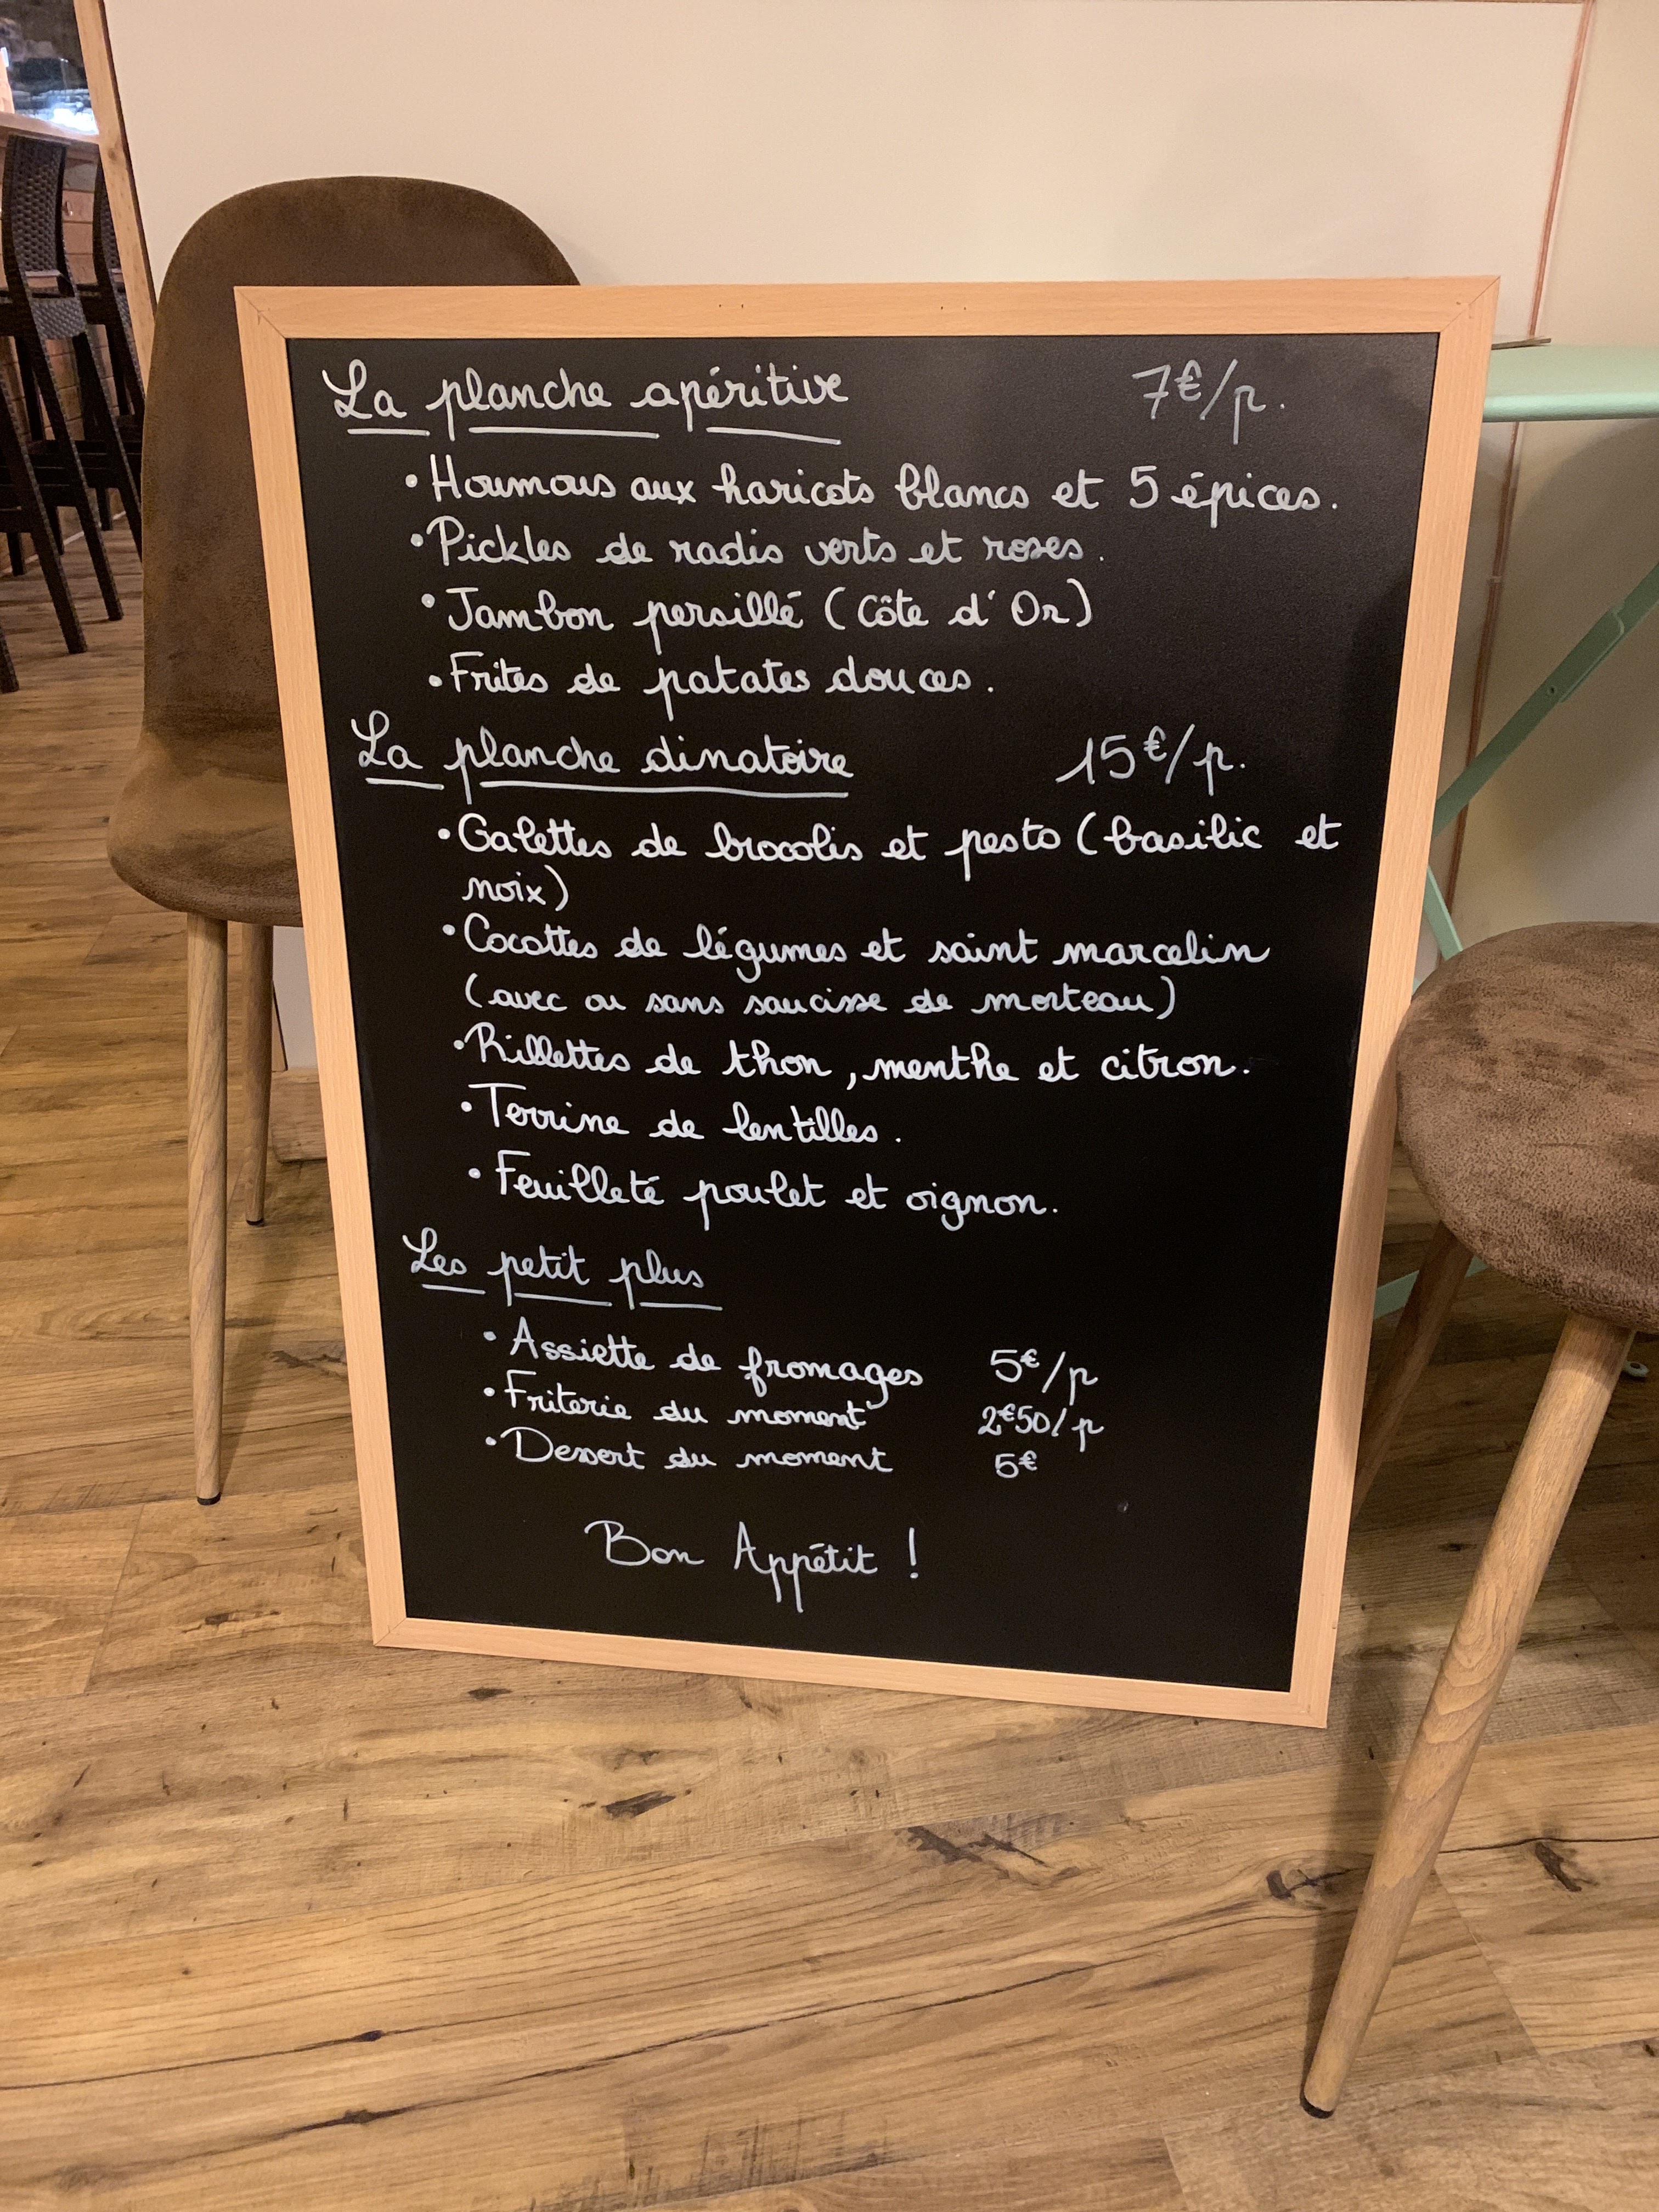 La planche apéritive 7€/p.
• Houmous aux haricots blancs et 5 épices.
• Pickles de radis verts et roses.
• Jambon persillé (Côte d'Or)
• Frites de patates douces.
La planche dinatoire 15€/p.
• Galettes de brocolis et pesto (basilic et
noix)
• Cocottes de légumes et saint marcelin
(avec ou sans saucisse de morteau)
• Rillettes de thon, menthe et citron.
• Terrine de lentilles.
• Feuilleté poulet et oignon.
Les petit plus
• Assiette de fromages 5€/p
• Friterie du moment 2€50/p
• Dessert du moment 5€
Bon Appétit !